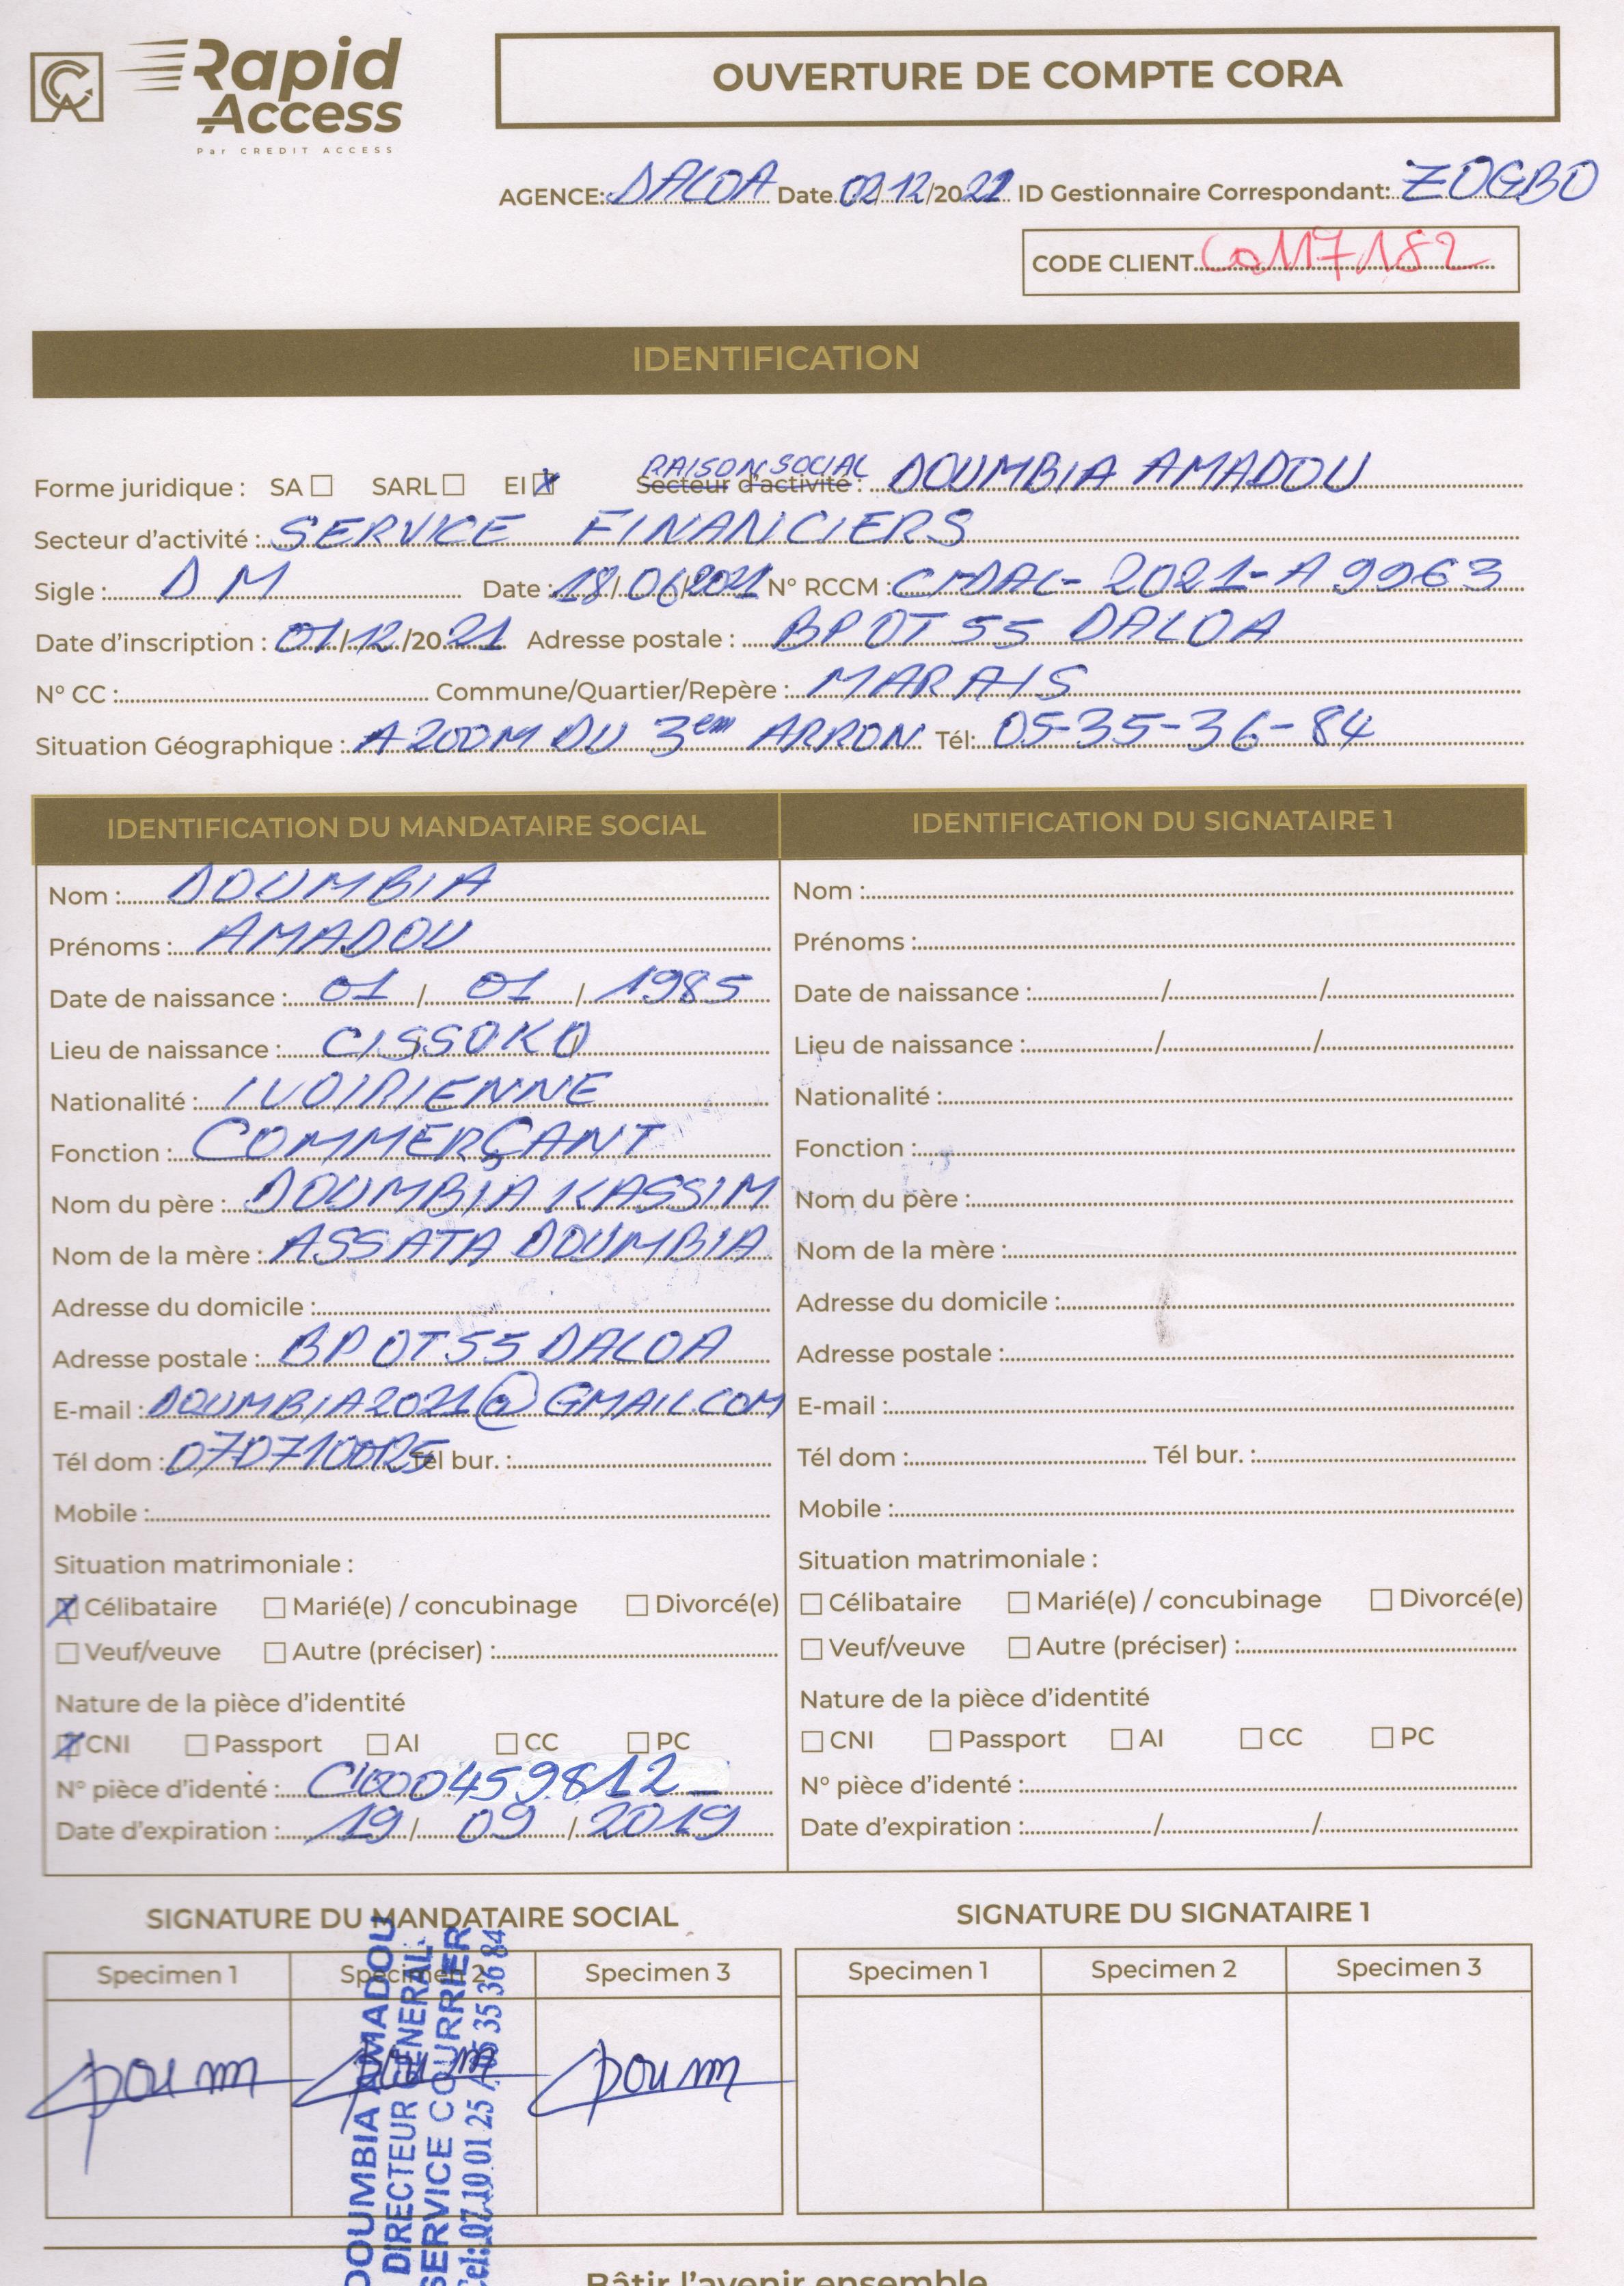 Rapid
Access
Par CREDIT ACCESS
OUVERTURE DE COMPTE CORA
AGENCE: DALOA Date 02/12/2021 ID Gestionnaire Correspondant: ZOGBO
CODE CLIENT Co117182
IDENTIFICATION
RAISON SOCIAL
Forme juridique : SA ☐ SARL ☐ EI ☒ Secteur d'activité : DOUMBIA AMADOU
Secteur d'activité : SERVICE FINANCIERS
Sigle : DM Date : 18/06/2021 N° RCCM : CI-DAL-2021-A9963
Date d'inscription : 01/12/2021 Adresse postale : BPOT55 DALOA
N° CC : Commune/Quartier/Repère : MARAIS
Situation Géographique : A 200M DU 3em ARRON Tél: 05-35-36-84
IDENTIFICATION DU MANDATAIRE SOCIAL
Nom : DOUMBIA
Prénoms : AMADOU
Date de naissance : 01 / 01 / 1985
Lieu de naissance : CISSOKO
Nationalité : IVOIRIENNE
Fonction : COMMERÇANT
Nom du père : DOUMBIA KASSIM
Nom de la mère : ASSATA DOUMBIA
Adresse du domicile :
Adresse postale : BPOT55 DALOA
E-mail : DOUMBIA2021@GMAIL.COM
Tél dom : 0707100125 Tél bur. :
Mobile :
Situation matrimoniale :
☒ Célibataire ☐ Marié(e) / concubinage ☐ Divorcé(e)
☐ Veuf/veuve ☐ Autre (préciser) :
Nature de la pièce d'identité
☒ CNI ☐ Passport ☐ AI ☐ CC ☐ PC
N° pièce d'identé : CI000459812
Date d'expiration : 19 / 09 / 2019
IDENTIFICATION DU SIGNATAIRE 1
Nom :
Prénoms :
Date de naissance : / /
Lieu de naissance : / /
Nationalité :
Fonction :
Nom du père :
Nom de la mère :
Adresse du domicile :
Adresse postale :
E-mail :
Tél dom : Tél bur. :
Mobile :
Situation matrimoniale :
☐ Célibataire ☐ Marié(e) / concubinage ☐ Divorcé(e)
☐ Veuf/veuve ☐ Autre (préciser) :
Nature de la pièce d'identité
☐ CNI ☐ Passport ☐ AI ☐ CC ☐ PC
N° pièce d'identé :
Date d'expiration : / /
SIGNATURE DU MANDATAIRE SOCIAL
Specimen 1 Specimen 2 Specimen 3
doum doum doum
DOUMBIA AMADOU
DIRECTEUR GENERAL
SERVICE COURRIER
Cel: 07 10 01 25 / 05 35 36 84
SIGNATURE DU SIGNATAIRE 1
Specimen 1 Specimen 2 Specimen 3
Bâtir l'avenir ensemble